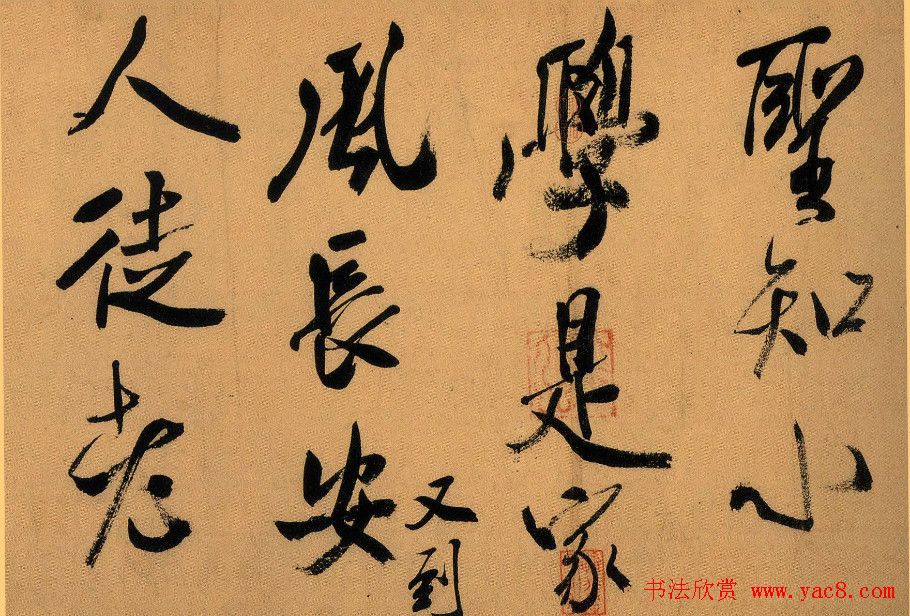 聖知小
學是家
又到
風長安
人徒老
书法欣赏 www.yac8.com